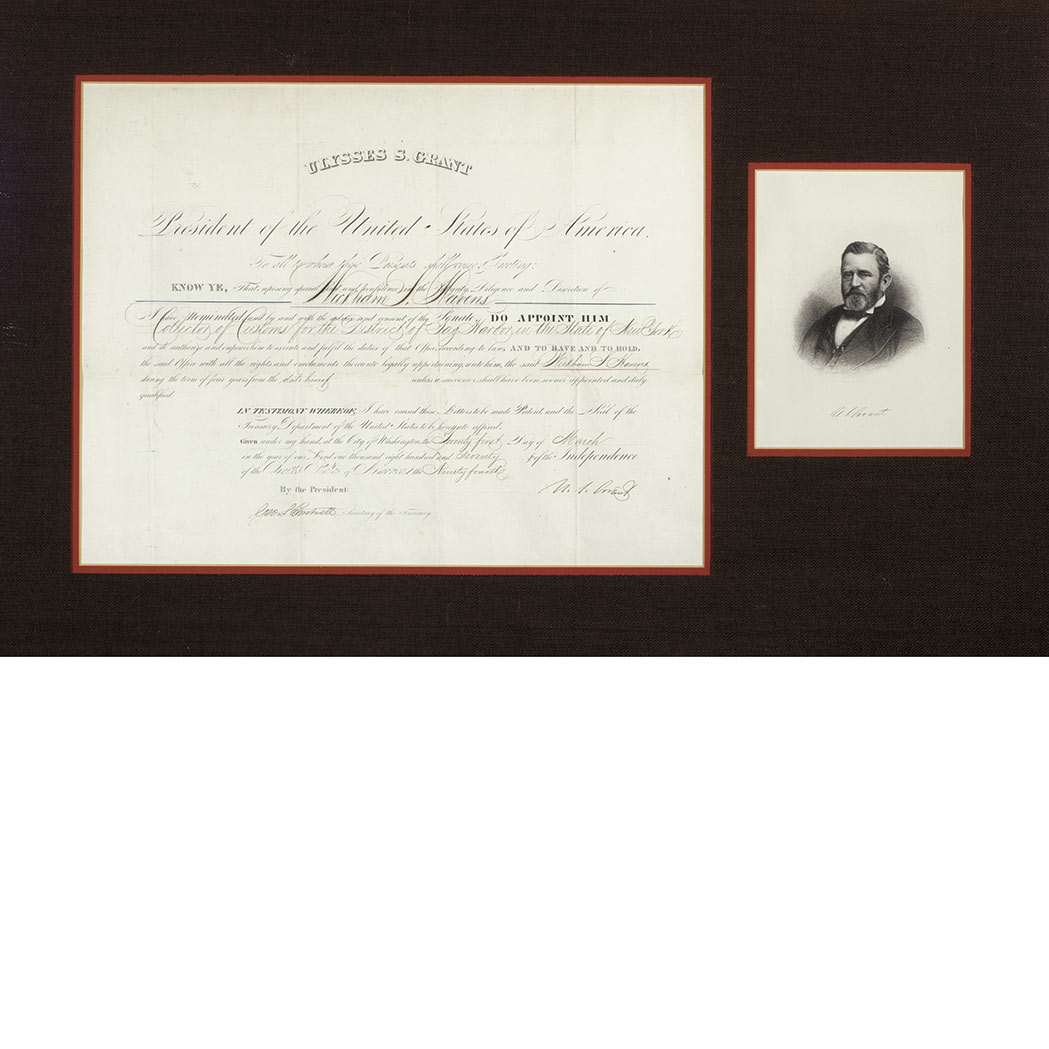 ULYSSES S. GRANT
President of the United States of America.
To all to whom these Presents shall come, Greeting:
KNOW YE, That, reposing special trust and confidence in the Integrity, Diligence and Discretion of
Wickham S. Havens
I have nominated and by and with the advice and consent of the Senate, DO APPOINT HIM
Collector of Customs for the District of Sag Harbor, in the State of New York
and do authorize and empower him to execute and fulfil the duties of that Office according to law; AND TO HAVE AND TO HOLD,
the said Office with all the rights and emoluments thereunto legally appertaining, unto him, the said Wickham S. Havens,
during the term of four years from the date hereof unless a successor shall have been sooner appointed and duly
qualified
IN TESTIMONY WHEREOF, I have caused these Letters to be made Patent, and the Seal of the
Treasury Department of the United States to be hereunto affixed.
Given under my hand, at the City of Washington, the Twenty first Day of March
in the year of our Lord one thousand eight hundred and Seventy of the Independence
of the United States of America the Ninety fourth
By the President: U. S. Grant
Geo. S. Boutwell Secretary of the Treasury.
U. S. Grant